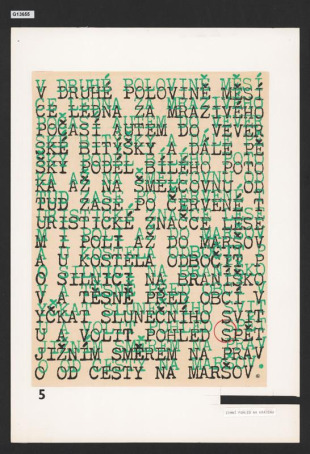 G13655
V DRUHÉ POLOVINĚ MĚSÍ
CE LEDNA ZA MRAZIVÉHO
POČASÍ AUTEM DO VEVER
SKÉ BITÝŠKY A DÁLE PĚ
ŠKY PODÉL BÍLÉHO POTO
KA AŽ NA ŠMELCOVNU OD
TUD ZASE PO ČERVENÉ T
URISTICKÉ ZNAČCE LESE
M I POLI AŽ DO MARŠOV
A U KOSTELA ODBOČIT P
O SILNICI NA BRANIŠKO
V A TĚSNĚ PŘED OBCÍ V
YČKAT SLUNEČNÍHO SVIT
U A VOLIT POHLED ZPĚT
JIŽNÍM SMĚREM NA PRAV
O OD CESTY NA MARŠOV.
5